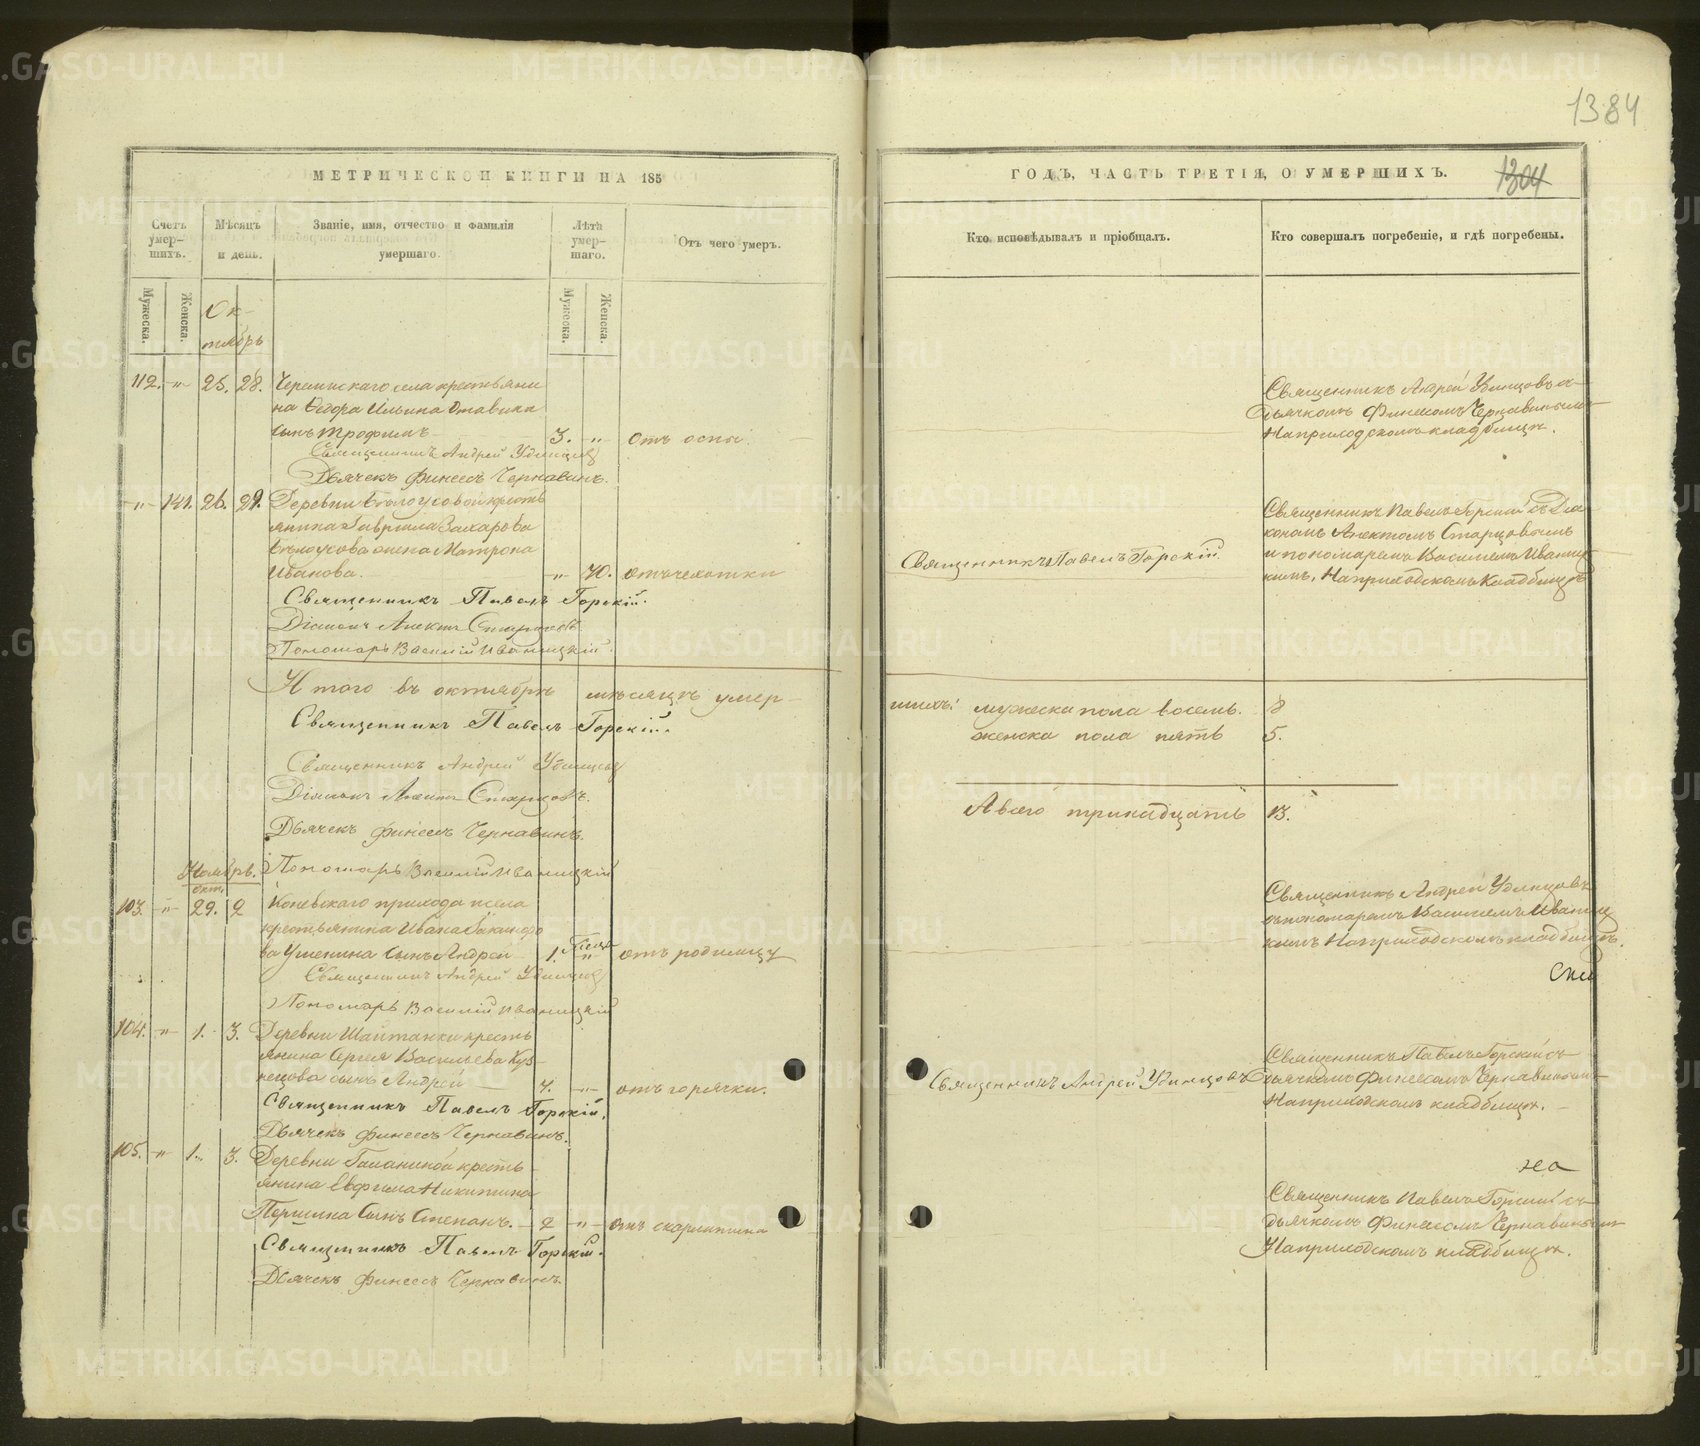 1384
МЕТРИЧЕСКОЙ КНИГИ НА 185
Счетъ умер-
шихъ.
Мѣсяцъ
и день.
Званіе, имя, отчество и фамилія
умершаго.
Лѣта
умер-
шаго.
Отъ чего умеръ.
Мужеска.
Женска.
Ок-
тябрь
Мужеска.
Женска.
112. -"- 25. 28. Черемисскаго села крестьяни
на Ѳедора Ильина
сынъ Трофимъ 3. -"- отъ оспы.
Священникъ Андрей Удинцовъ
Дьячекъ Финеесъ Чернавинъ.
-"- 141. 26. 29. Деревни Бѣлоусовой кресть
янина Гаврила Захарова
Бѣлоусова жена Матрона
Иванова. -"- 70. отъ чахотки
Священникъ Павелъ Горскій.
Діаконъ Старцовъ.
Пономарь Василій Иваницкій.
Итого въ октябрѣ мѣсяцѣ умер-
Священникъ Павелъ Горскій.
Священникъ Андрей Удинцовъ
Діаконъ Старцовъ.
Дьячекъ Финеесъ Чернавинъ.
Ноябрь. Пономарь Василій Иваницкій
окт.
103. -"- 29. 2 Коневскаго прихода и села
крестьянина Ивана
сынъ Андрей 1. отъ родимцу
Священникъ Андрей Удинцовъ
Пономарь Василій Иваницкій
104. -"- 1. 3. Деревни Шайтанки кресть
янина Сергея Васильева Куз-
нецова сынъ Андрей 7. -"- отъ горячки.
Священникъ Павелъ Горскій.
Дьячекъ Финеесъ Чернавинъ.
105. -"- 1. 3. Деревни кресть-
янина Евфима Никитина
сынъ Степанъ. 2 -"- отъ скарлатина
Священникъ Павелъ Горскій.
Дьячекъ Финеесъ Чернавинъ.
ГОДЪ, ЧАСТЬ ТРЕТІЯ, О УМЕРШИХЪ.
1304
Кто исповѣдывалъ и пріобщалъ.
Кто совершалъ погребеніе, и гдѣ погребены.
Священникъ Андрей Удинцовъ съ
дьячкомъ Финеесомъ Чернавинымъ
На приходскомъ кладбищѣ.
Священникъ Павелъ Горскій
Священникъ Павелъ Горскій съ Діа
кономъ Старцовымъ
и пономаремъ Василіемъ Иваниц
кимъ, На приходскомъ кладбищѣ
шихъ: мужеска пола восемь. 8
женска пола пять 5.
А всего тринадцать 13.
Священникъ Андрей Удинцовъ
съ пономаремъ Василіемъ Иваниц
кимъ На приходскомъ кладбищѣ.
Священникъ Андрей Удинцовъ
Священникъ Павелъ Горскій съ
дьячкомъ Финеесомъ Чернавинымъ
На приходскомъ кладбищѣ.
Священникъ Павелъ Горскій съ
дьячкомъ Финеесомъ Чернавинымъ
На приходскомъ кладбищѣ.
METRIKI.GASO-URAL.RU